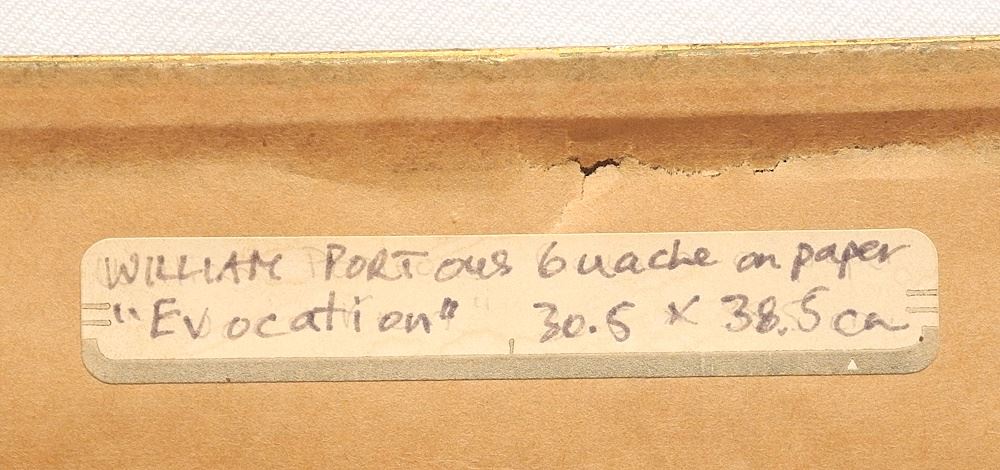 WILLIAM PORTous Guache on paper
"Evocation" 30.5 x 38.5 cm